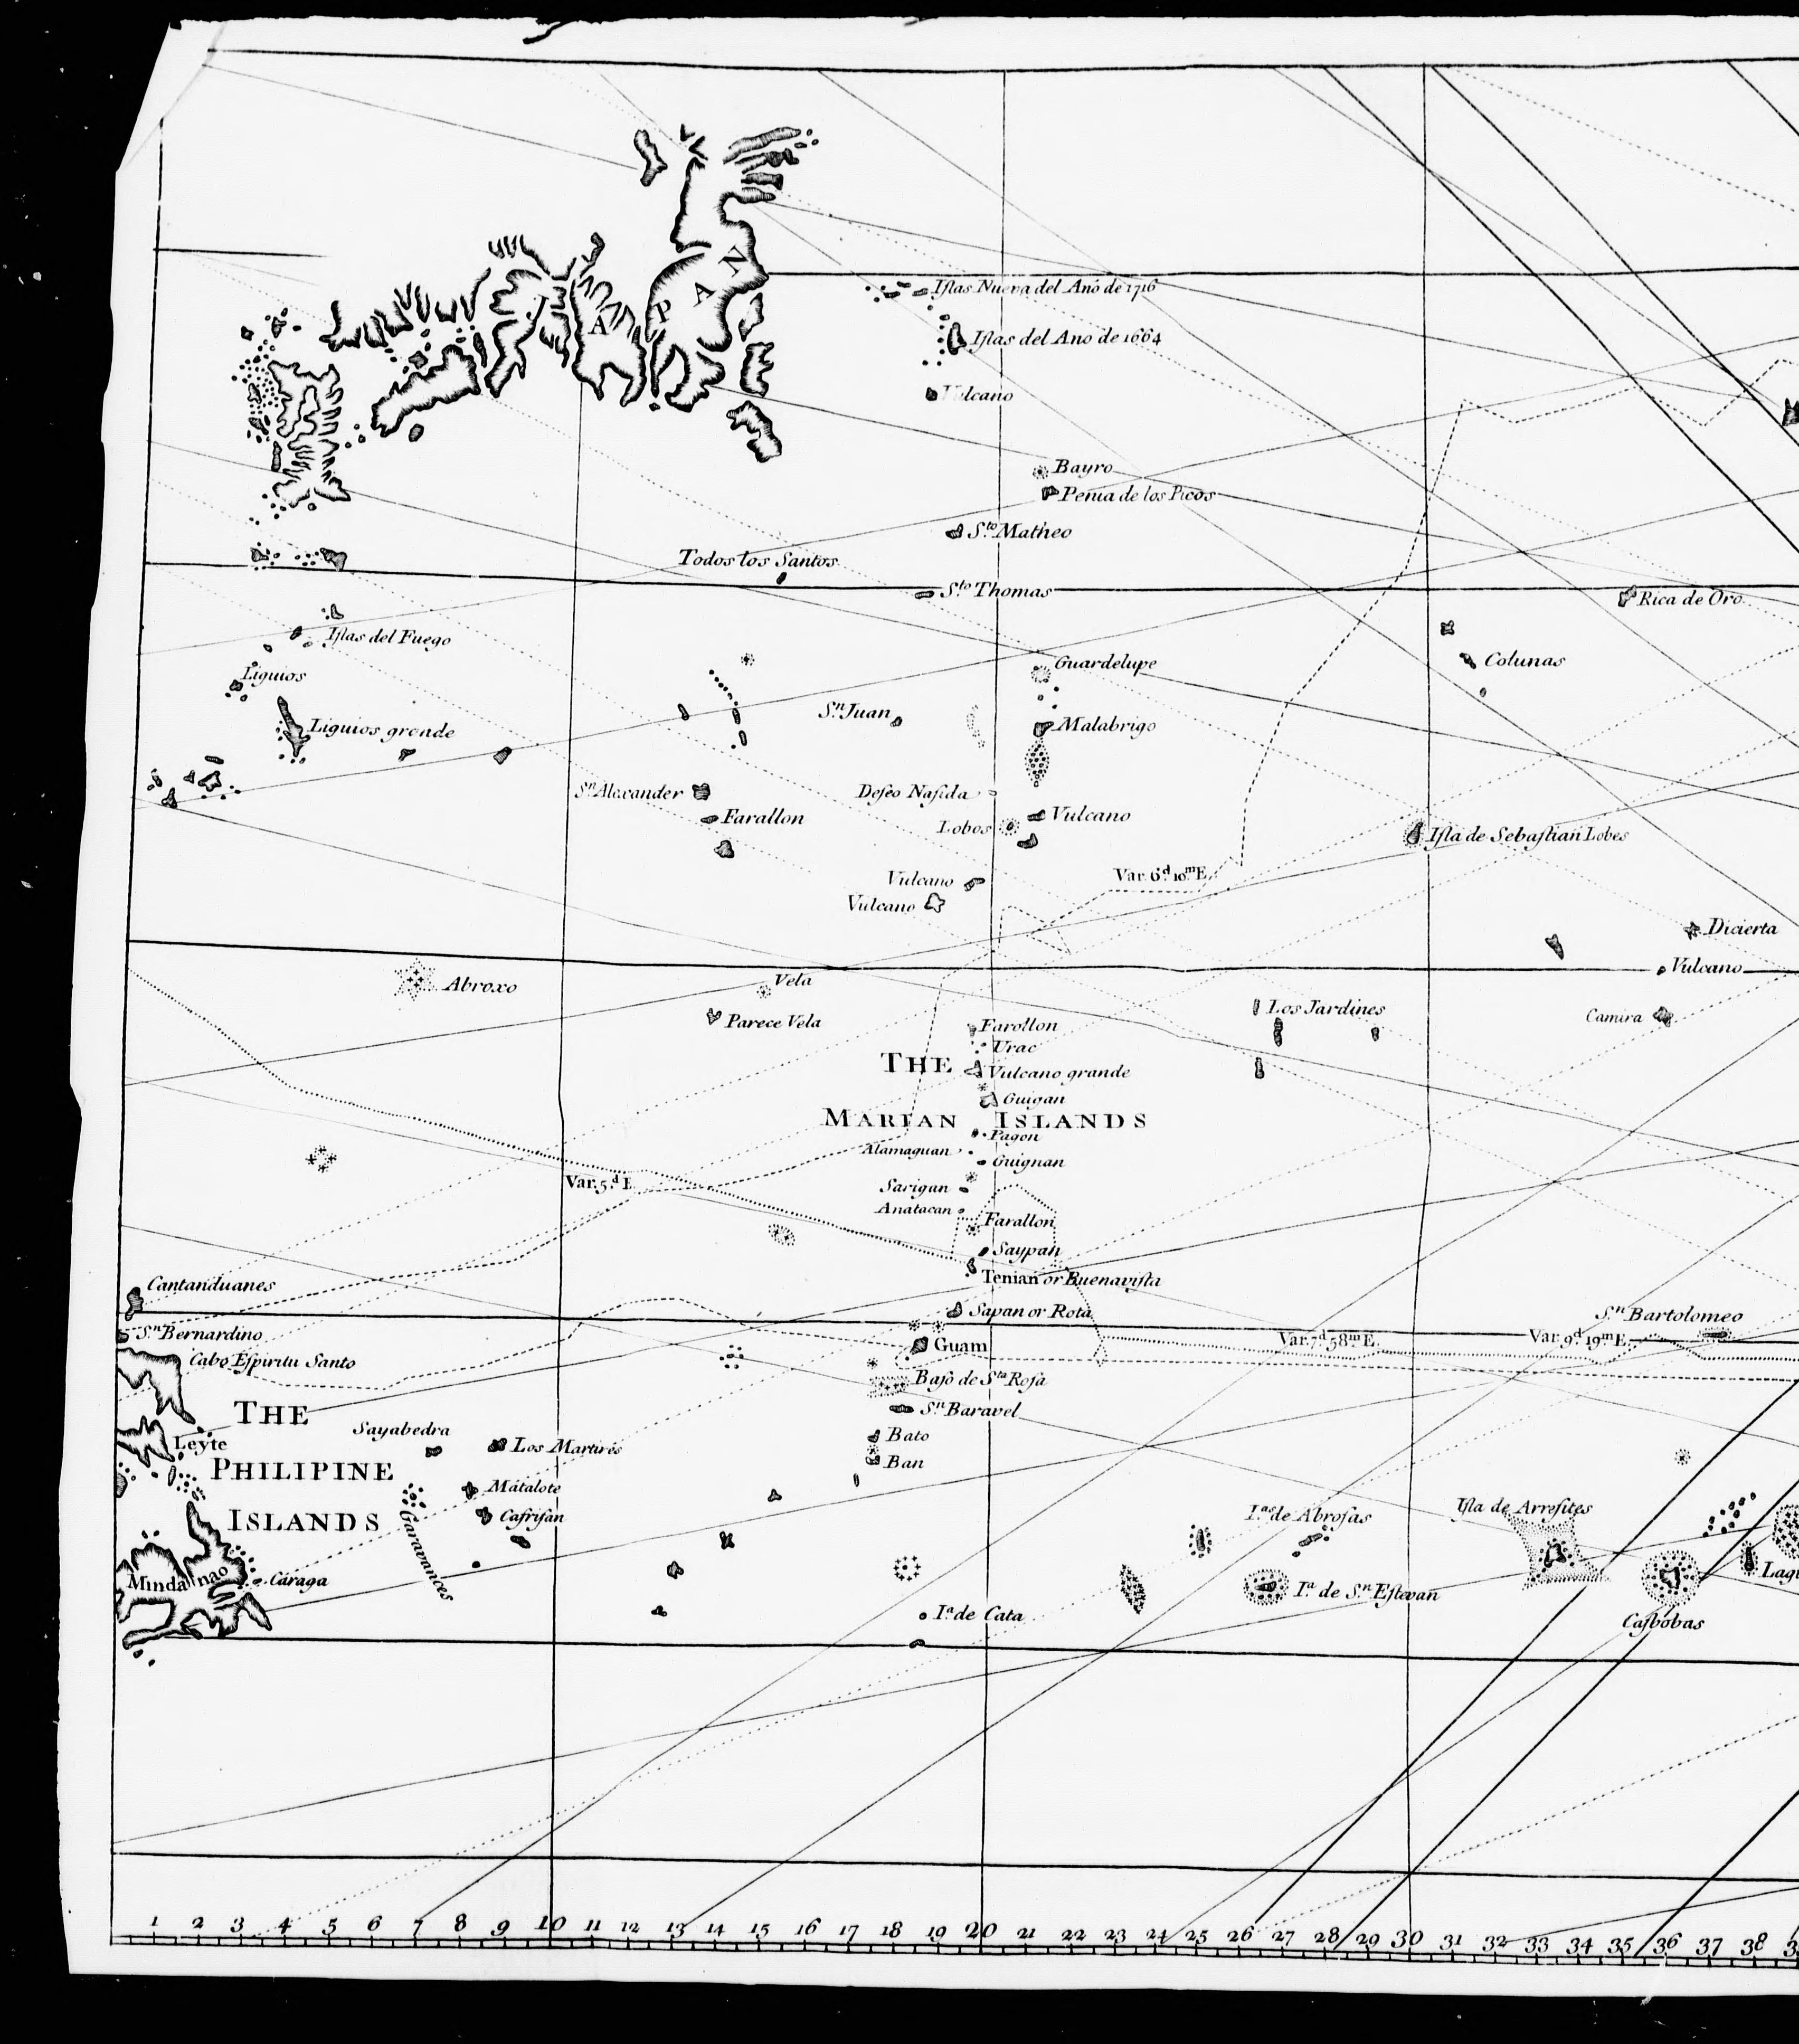 JAPAN
Islas Nueva del Anó de 1716
Islas del Ano de 1664
Vulcano
Bayro
Penia de los Picos
Sto. Matheo
Todos los Santos
Sto. Thomas
Rica de Oro
Islas del Fuego
Guardelupe
Colunas
Liquios
Sn. Juan
Malabrigo
Liquios grande
Sn. Alexander
Deseo Nasida
Farallon
Vulcano
Lobos
Isla de Sebastian Lobes
Var. 6d. 10m E.
Vulcano
Vulcano
Dicierta
Vulcano
Abroxo
Vela
Los Jardines
Camira
Parece Vela
Farollon
Urac
THE
Vulcano grande
Guigan
MARIAN ISLANDS
Pagon
Alamaguan
Guignan
Var. 5d. E.
Sarigan
Anatacan
Farallon
Saypan
Tenian or Buenavista
Cantanduanes
Sapan or Rota
Sn. Bartolomeo
Sn. Bernardino
Guam
Var. 7d. 58m E.
Var. 9d. 19m E.
Cabo Espiritu Santo
Baso de Sta. Rosa
THE
Sn. Baravel
Sayabedra
Bato
Leyte
Los Martires
Ban
PHILIPINE
Matalote
ISLANDS
Casrisan
Ias. de Abrosas
Isla de Arresites
Garavances
Mindanao
Caraga
Ia. de Sn. Estevan
Ia. de Cata
Casbobas
1 2 3 4 5 6 7 8 9 10 11 12 13 14 15 16 17 18 19 20 21 22 23 24 25 26 27 28 29 30 31 32 33 34 35 36 37 38